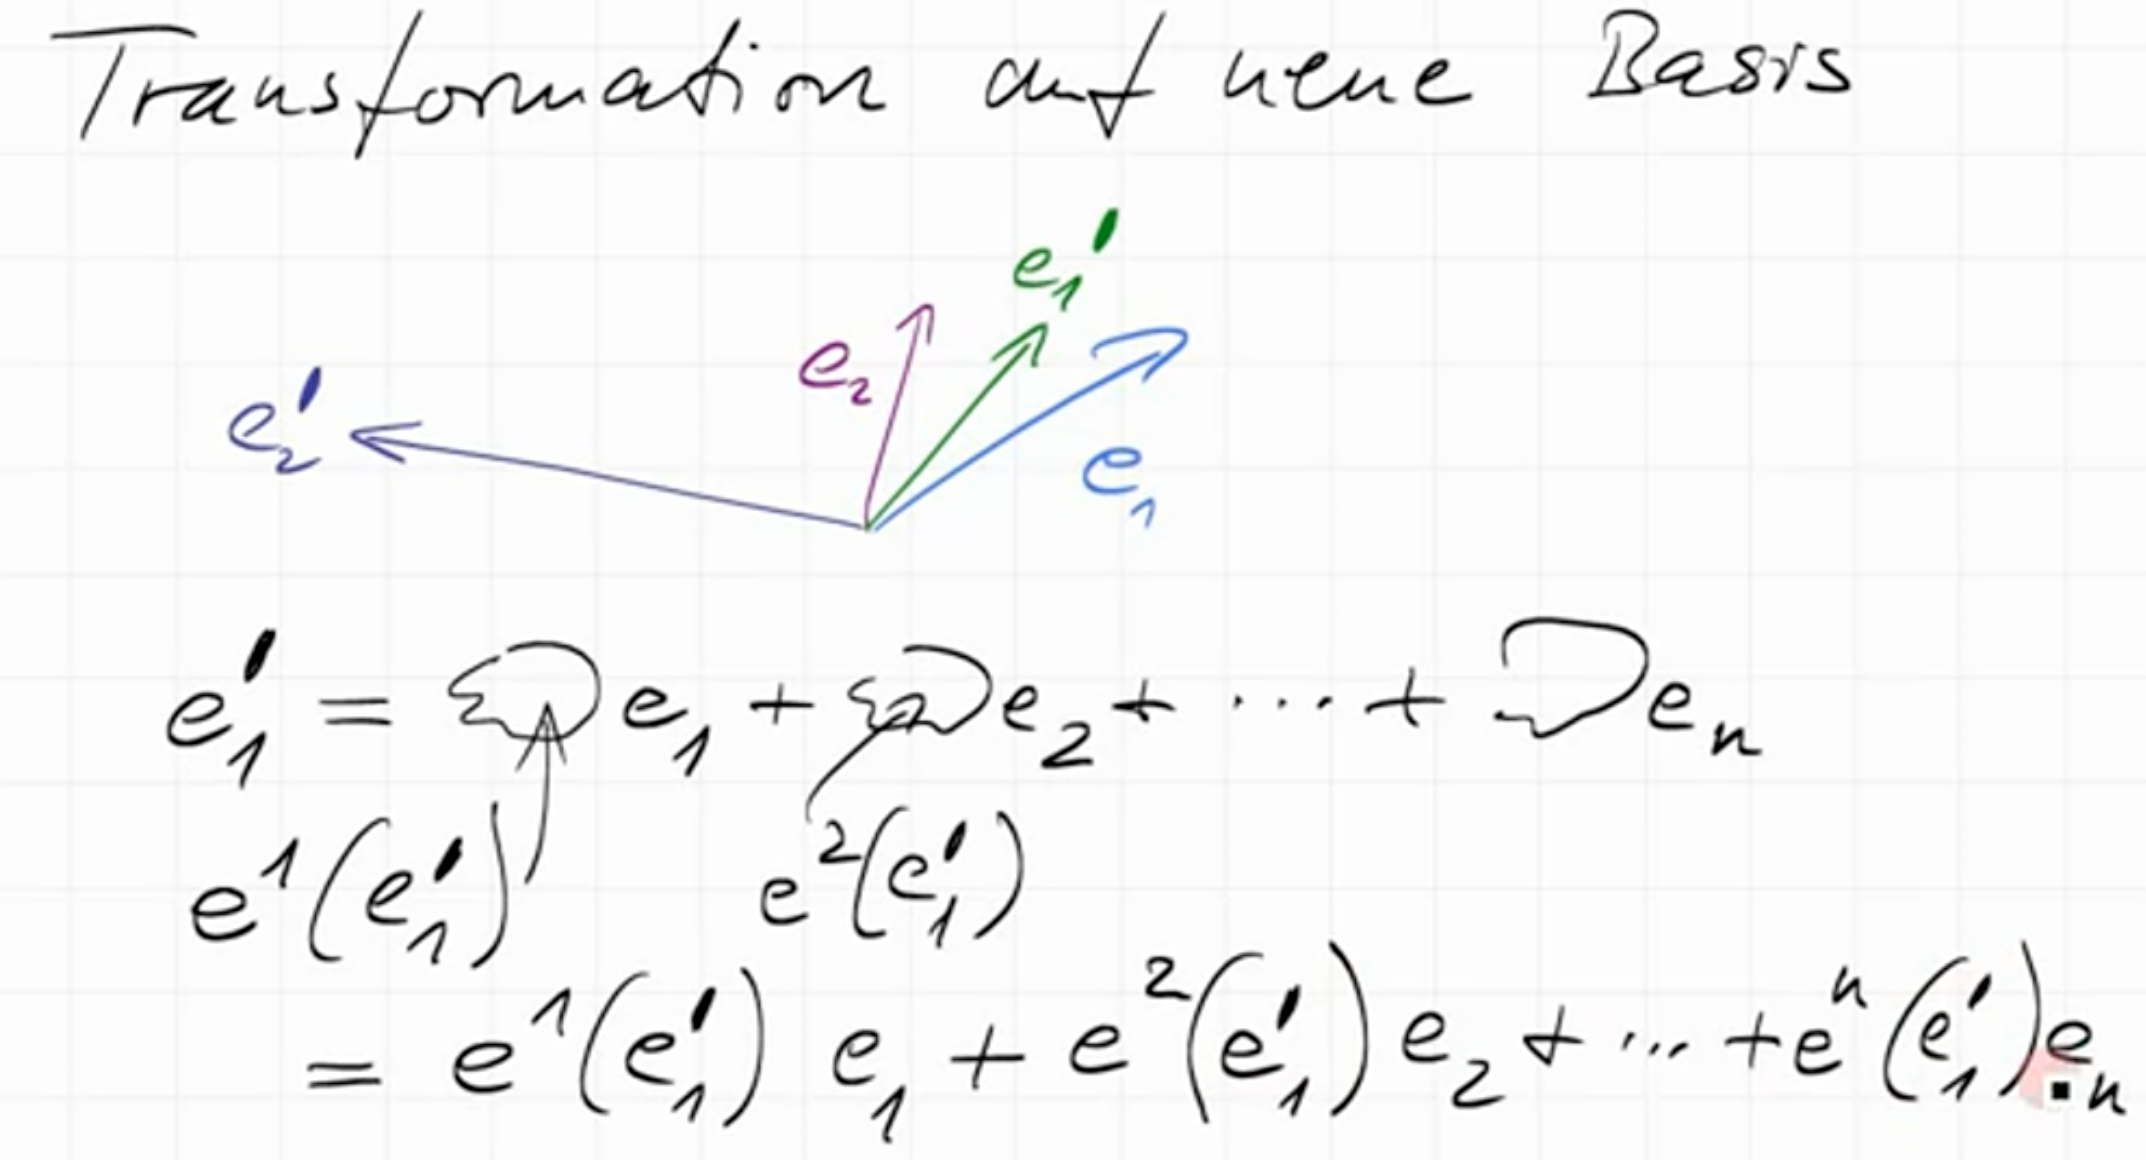 Transformation auf neue Basis
e₁'
e₂
e₂'
e₁
e₁' = e₁ + e₂ + ... + eₙ
e¹(e₁') e²(e₁')
= e¹(e₁') e₁ + e²(e₁') e₂ + ... + eⁿ(e₁') eₙ